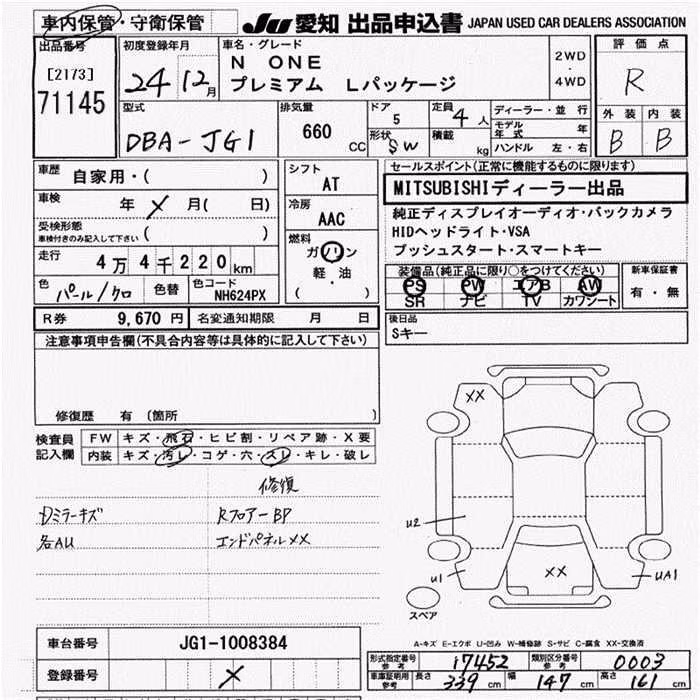 車内保管・守衛保管 JU 愛知 出品申込書 JAPAN USED CAR DEALERS ASSOCIATION
出品番号
[2173]
71145
初度登録年月
24 12月
車名・グレード
N ONE
プレミアム Lパッケージ
2WD
・
4WD
評価点
R
外装 内装
B B
型式
DBA-JG1
排気量
660 CC
ドア
5
形状 SW
定員 4 人
積載 kg
ディーラー・並行
モデル年式 年
ハンドル 左・右
車歴 自家用・( )
車検 年 X 月( 日)
受検形態
車検付きのみ記入して下さい ( )
走行 4万4千220km
色 パール/クロ 色替 色コード NH624PX
シフト
AT
冷房
AAC
燃料
ガソリン
軽・油
( )
セールスポイント(正常に機能するものに限ります)
MITSUBISHIディーラー出品
純正ディスプレイオーディオ・バックカメラ
HIDヘッドライト・VSA
プッシュスタート・スマートキー
装備品(純正品に限り○をつけてください)
PS PW エアB AW
SR ナビ TV カワシート
新車保証書
有・無
R券 9,670 円 名変通知期限 月 日
後日品
Sキー
注意事項申告欄(不具合内容等は具体的に記入して下さい)
修復歴 有 (箇所 )
検査員
記入欄
FW キズ・飛石・ヒビ割・リペア跡・X要
内装 キズ・汚レ・コゲ・穴・スレ・キレ・破レ
修復
Dミラーキズ RフロアーBP
各AU エンドパネルXX
XX
U2
U1
XX
UA1
スペア
車台番号 JG1-1008384
登録番号 X
A-キズ E-エクボ U-凹み W-補修跡 S-サビ C-腐食 XX-交換済
形式指定番号 参考 17452 類別区分番号 参考 0003
車庫証明用 参考 長さ 339 cm 幅 147 cm 高さ 161 cm